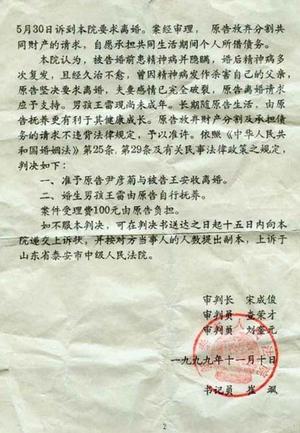 5月30日诉到本院要求离婚。案经审理，原告放弃分割共
同财产的请求，自愿承担共同生活期间个人所借债务。
本院认为，被告婚前患精神病并隐瞒，婚后精神病多
次复发，且经久治不愈，曾因精神病发作杀害自己的父亲，
原告坚决要求离婚，夫妻感情已完全破裂，原告离婚请求
应予支持。男孩王雷现尚未成年。长期随原告生活，由原
告抚养更有利于其健康成长。原告放弃财产分割及承担债
务的请求不违背法律规定，予以准许。依照《中华人民共
和国婚姻法》第25条、第29条及有关民事法律政策之规定，
判决如下：
一、准予原告尹彦菊与被告王安收离婚。
二、婚生男孩王雷由原告自行抚养。
案件受理费100元由原告负担。
如不服本判决，可在判决书送达之日起十五日内向本
院递交上诉状，并按对方当事人的人数提出副本，上诉于
山东省泰安市中级人民法院。
审判长 宋成俊
审判员 荣才
审判员 刘金元
一九九九年十一月十日
书记员 崔飒
2